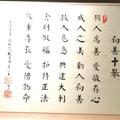 向善十擧
與人為善 愛敬存心
成人之美 勸人向善
救人危急 興建大利
捨財作福 護持正法
敬重尊長 愛惜物命